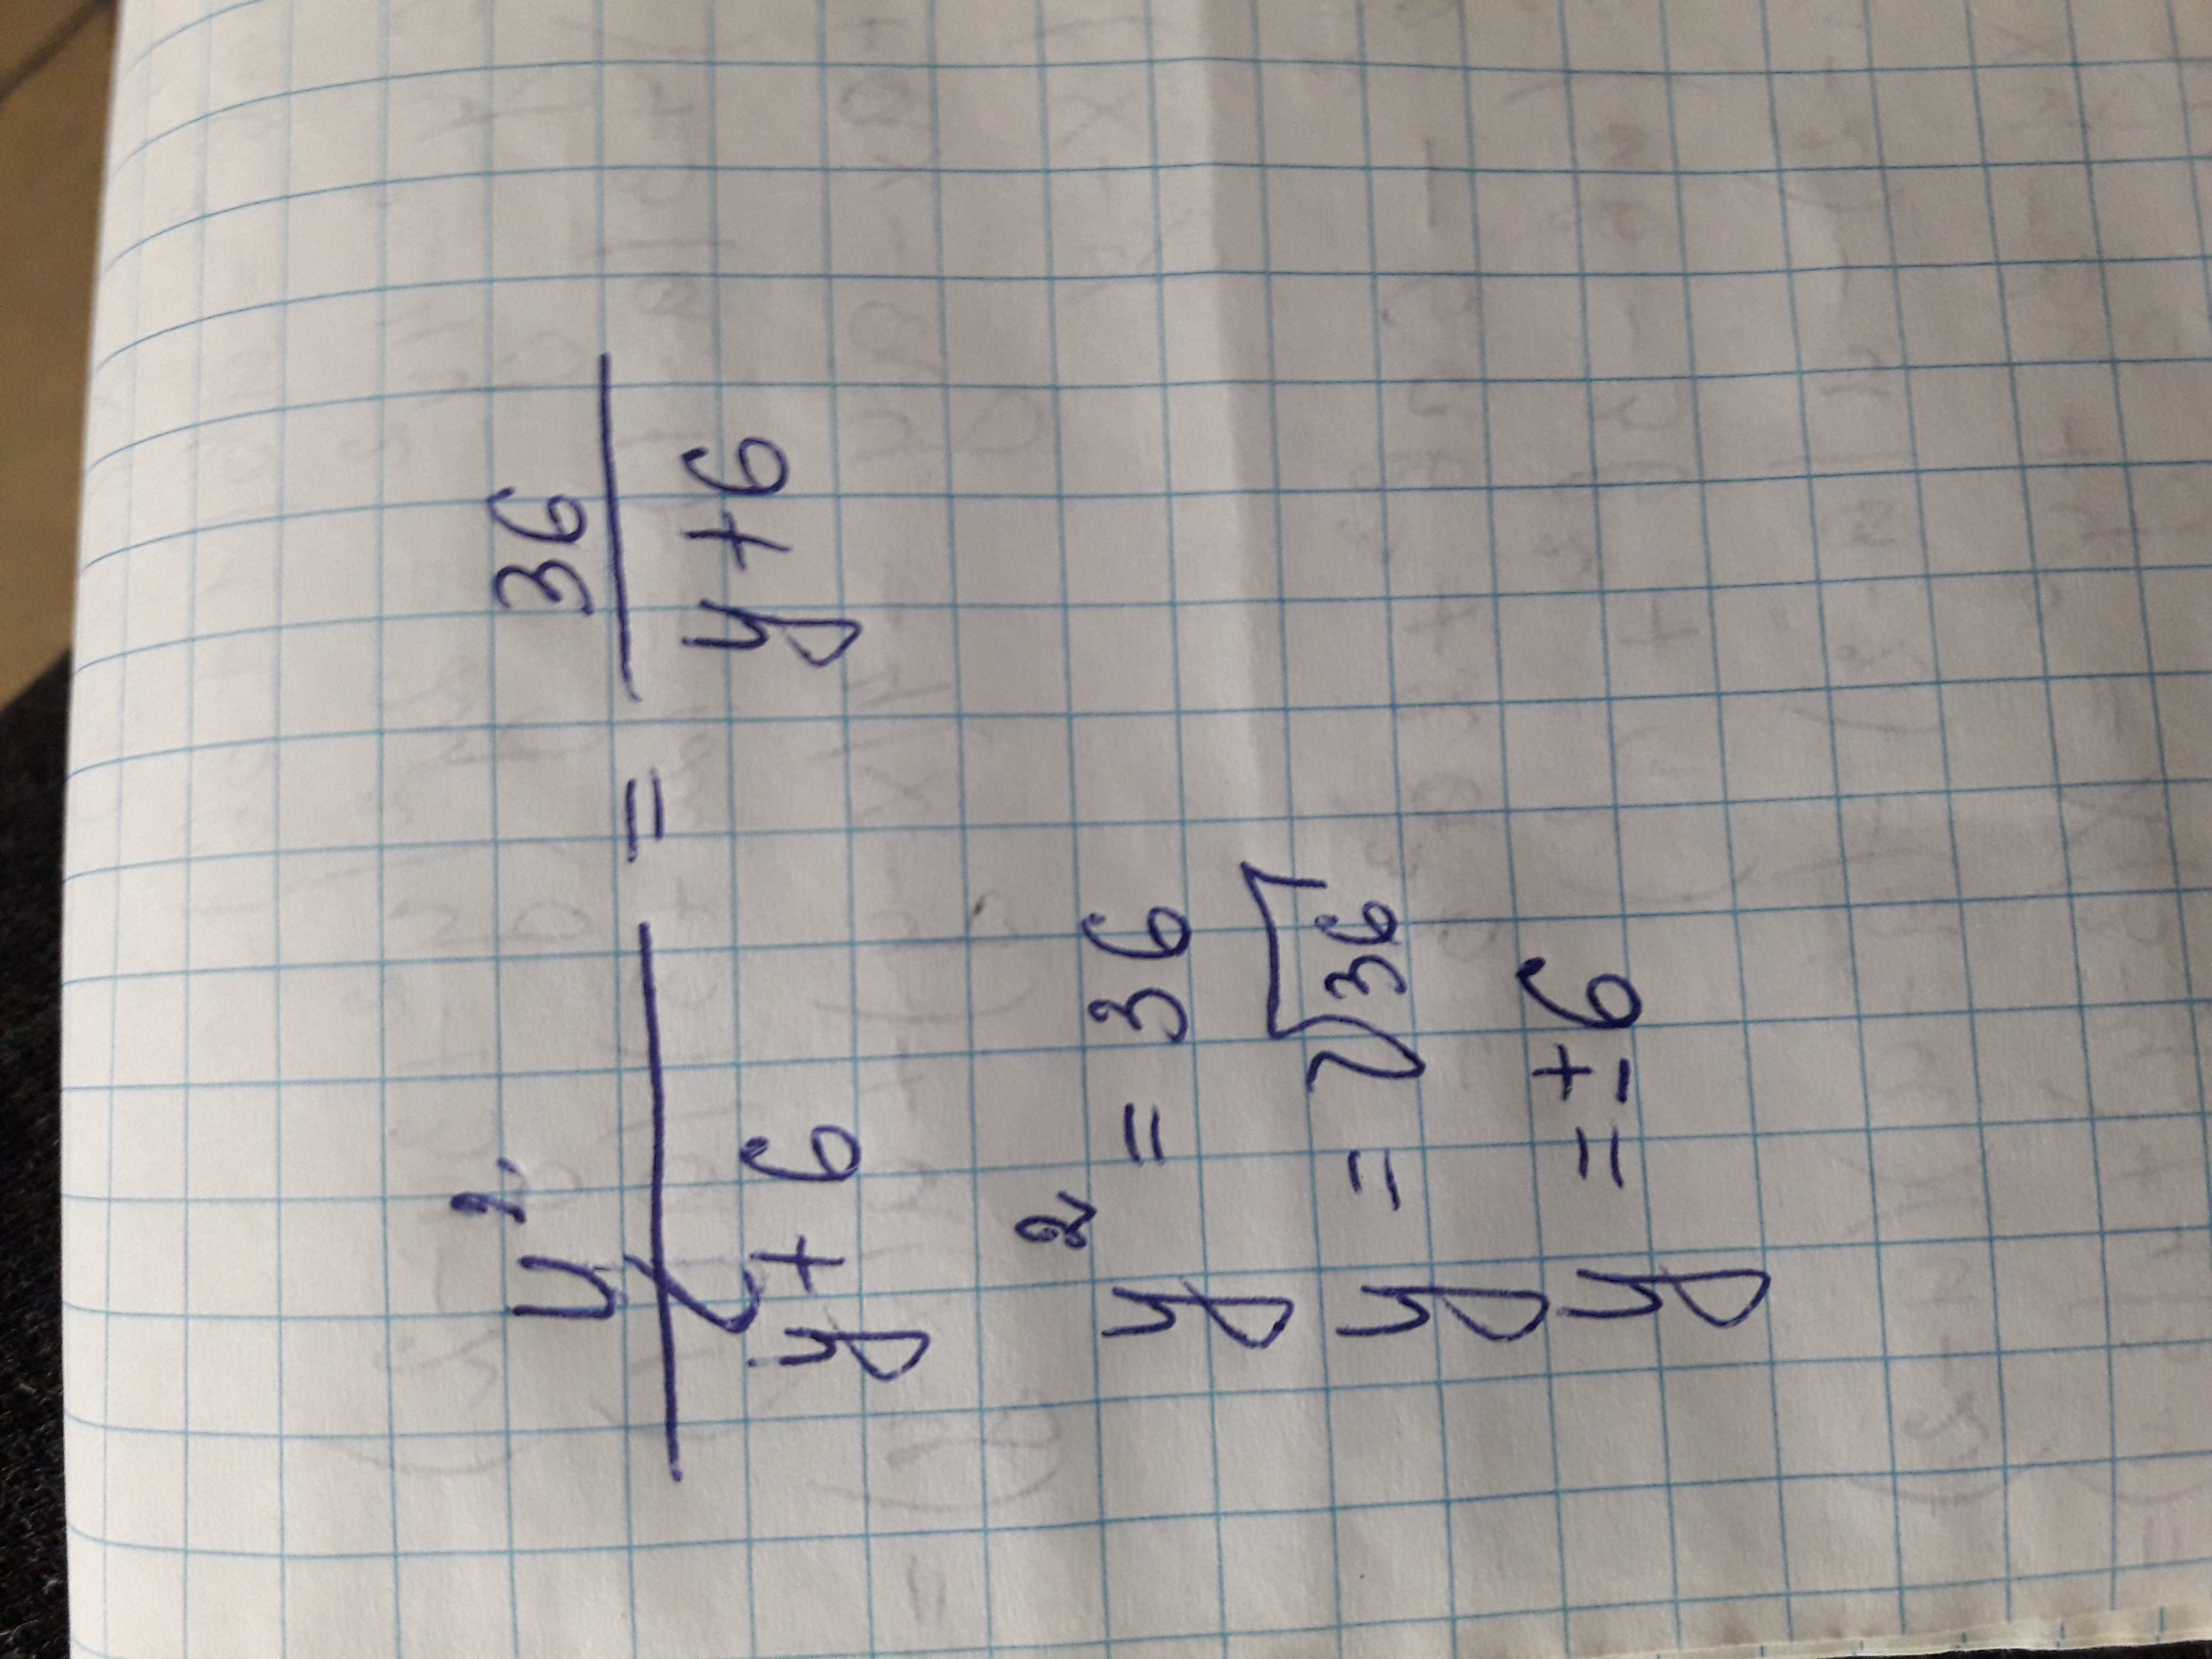 y² / y + 6 = 36 / y + 6
y² = 36
y = √36
y = ± 6